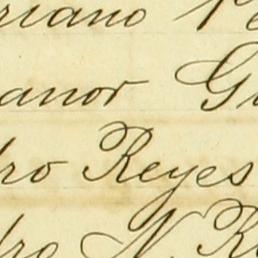 riano Pe
eanor Gu
dro Reyes
dro N. Re